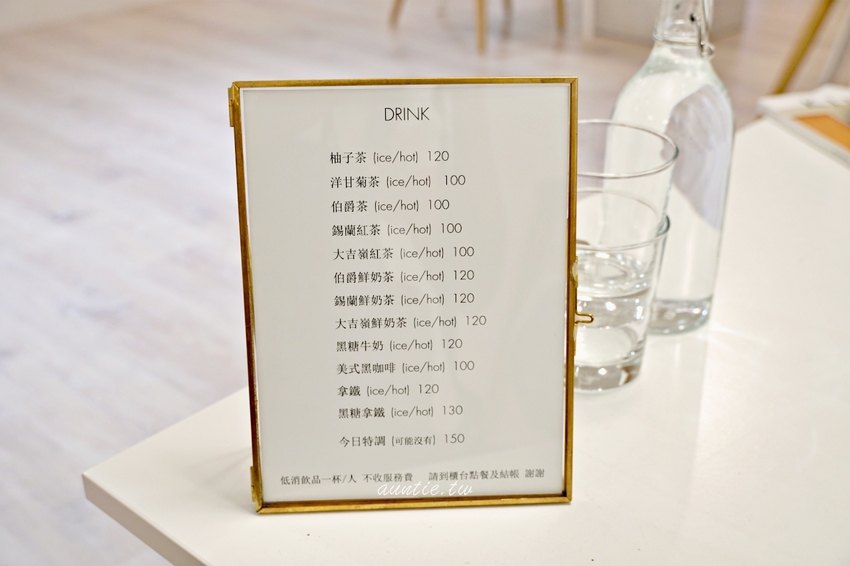 DRINK
柚子茶 (ice/hot) 120
洋甘菊茶 (ice/hot) 100
伯爵茶 (ice/hot) 100
錫蘭紅茶 (ice/hot) 100
大吉嶺紅茶 (ice/hot) 100
伯爵鮮奶茶 (ice/hot) 120
錫蘭鮮奶茶 (ice/hot) 120
大吉嶺鮮奶茶 (ice/hot) 120
黑糖牛奶 (ice/hot) 120
美式黑咖啡 (ice/hot) 100
拿鐵 (ice/hot) 120
黑糖拿鐵 (ice/hot) 130
今日特調 (可能沒有) 150
低消飲品一杯/人 不收服務費 請到櫃台點餐及結帳 謝謝
auntie.tw